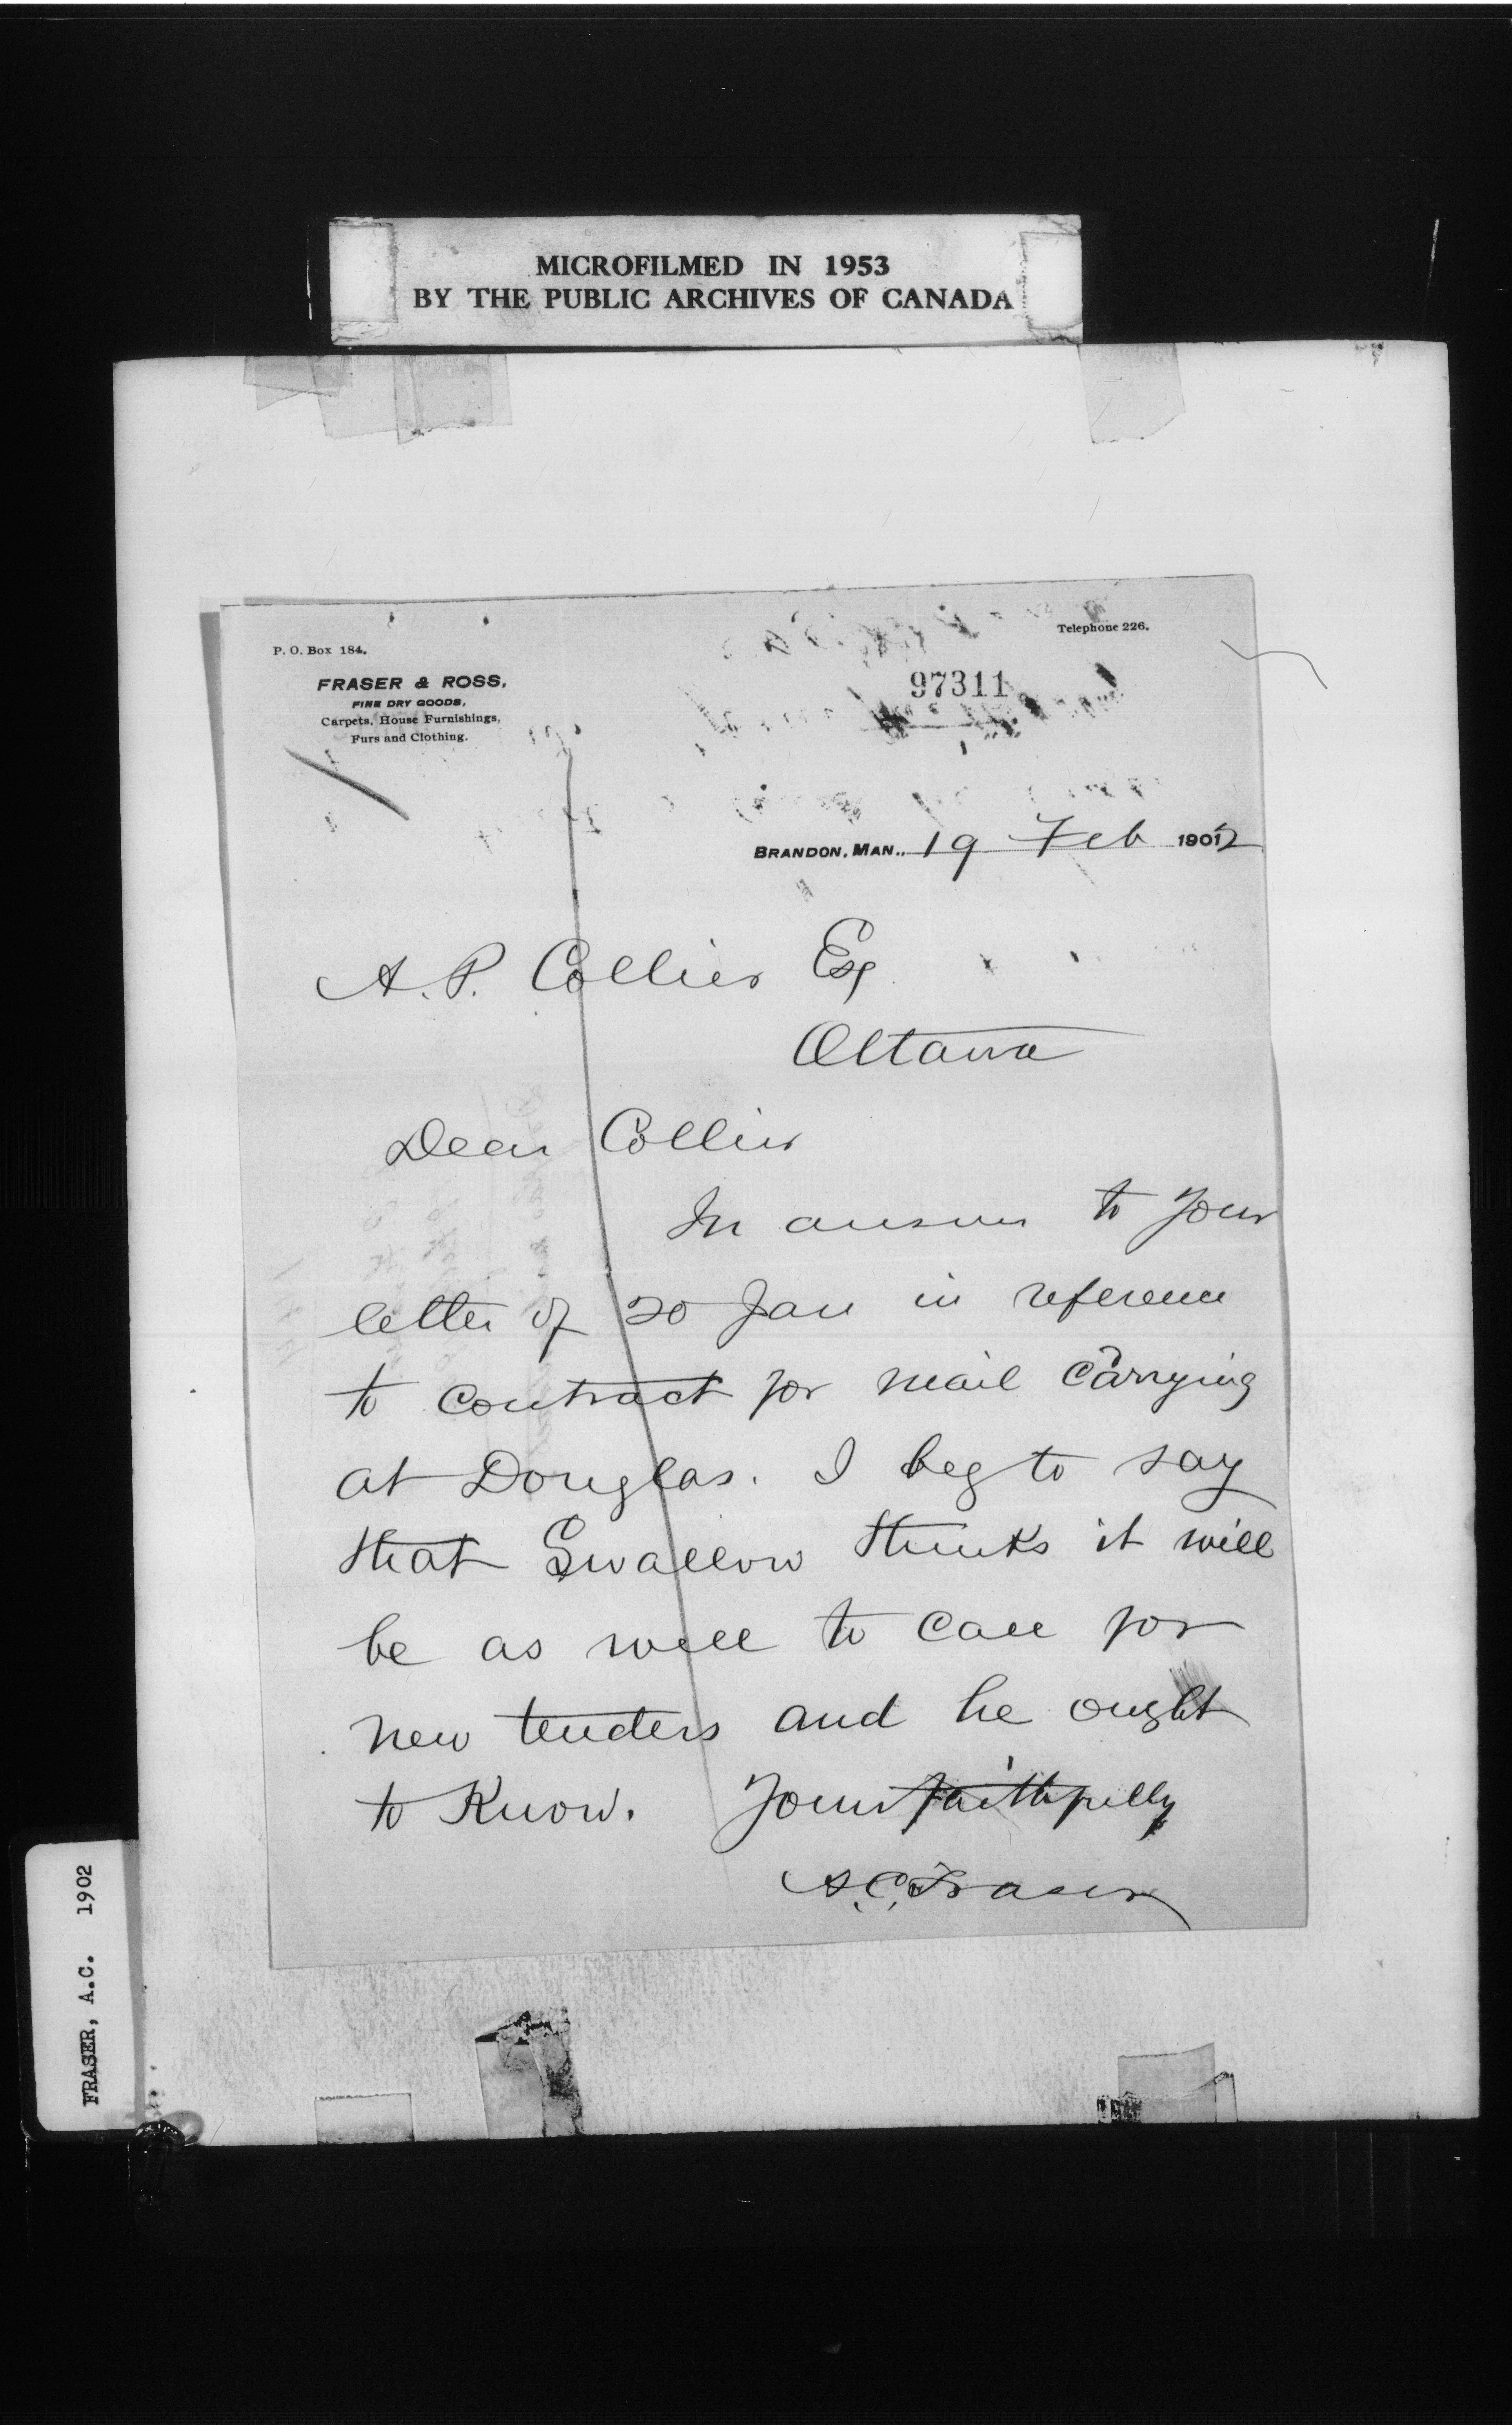 MICROFILMED IN 1953
BY THE PUBLIC ARCHIVES OF CANADA
P. O. Box 184.
Telephone 226.
FRASER & ROSS,
FINE DRY GOODS,
Carpets, House Furnishings,
Furs and Clothing.
97311
BRANDON, MAN., 19 Feb 1902
A. P. Collier Esq
Ottawa
Dear Collier
In answer to your
letter of 20 Jan in reference
to contract for mail carrying
at Douglas. I beg to say
that Swallow thinks it will
be as well to call for
new tenders and he ought
to Know. Yours faithfully
A. C. Fraser
FRASER, A.C. 1902